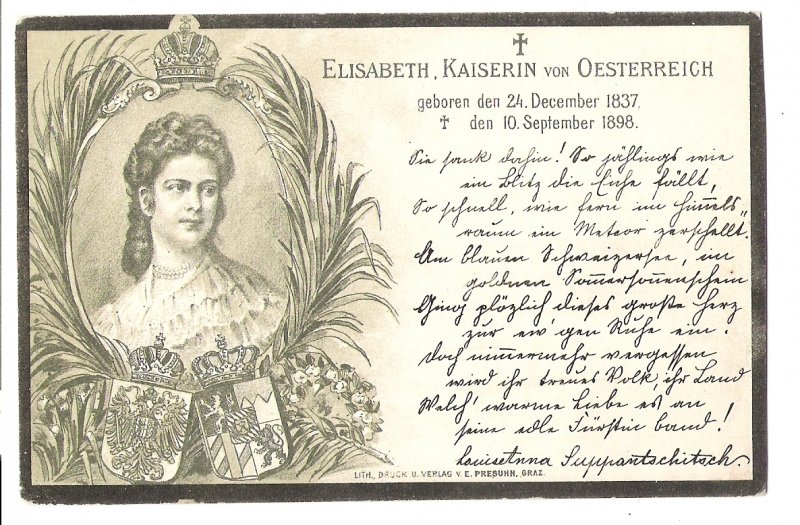 ✝
ELISABETH, KAISERIN VON OESTERREICH
geboren den 24. December 1837,
✝ den 10. September 1898.
Sie sank dahin! So jählings wie
ein Blitz die Eiche fällt,
So schnell, wie fern im Himmels„
raum ein Meteor zerschellt.
Am blauen Schweizersee, im
goldnen Sommersonnenschein
Ging plözlich dieses große Herz
zur ew'gen Ruhe ein.
Doch nimmermehr vergessen
wird ihr treues Volk, ihr Land
Welch' warme Liebe es an
seine edle Fürstin band!
Louise Anna Suppantschitsch.
LITH., DRUCK U. VERLAG V. E. PRESUHN, GRAZ.